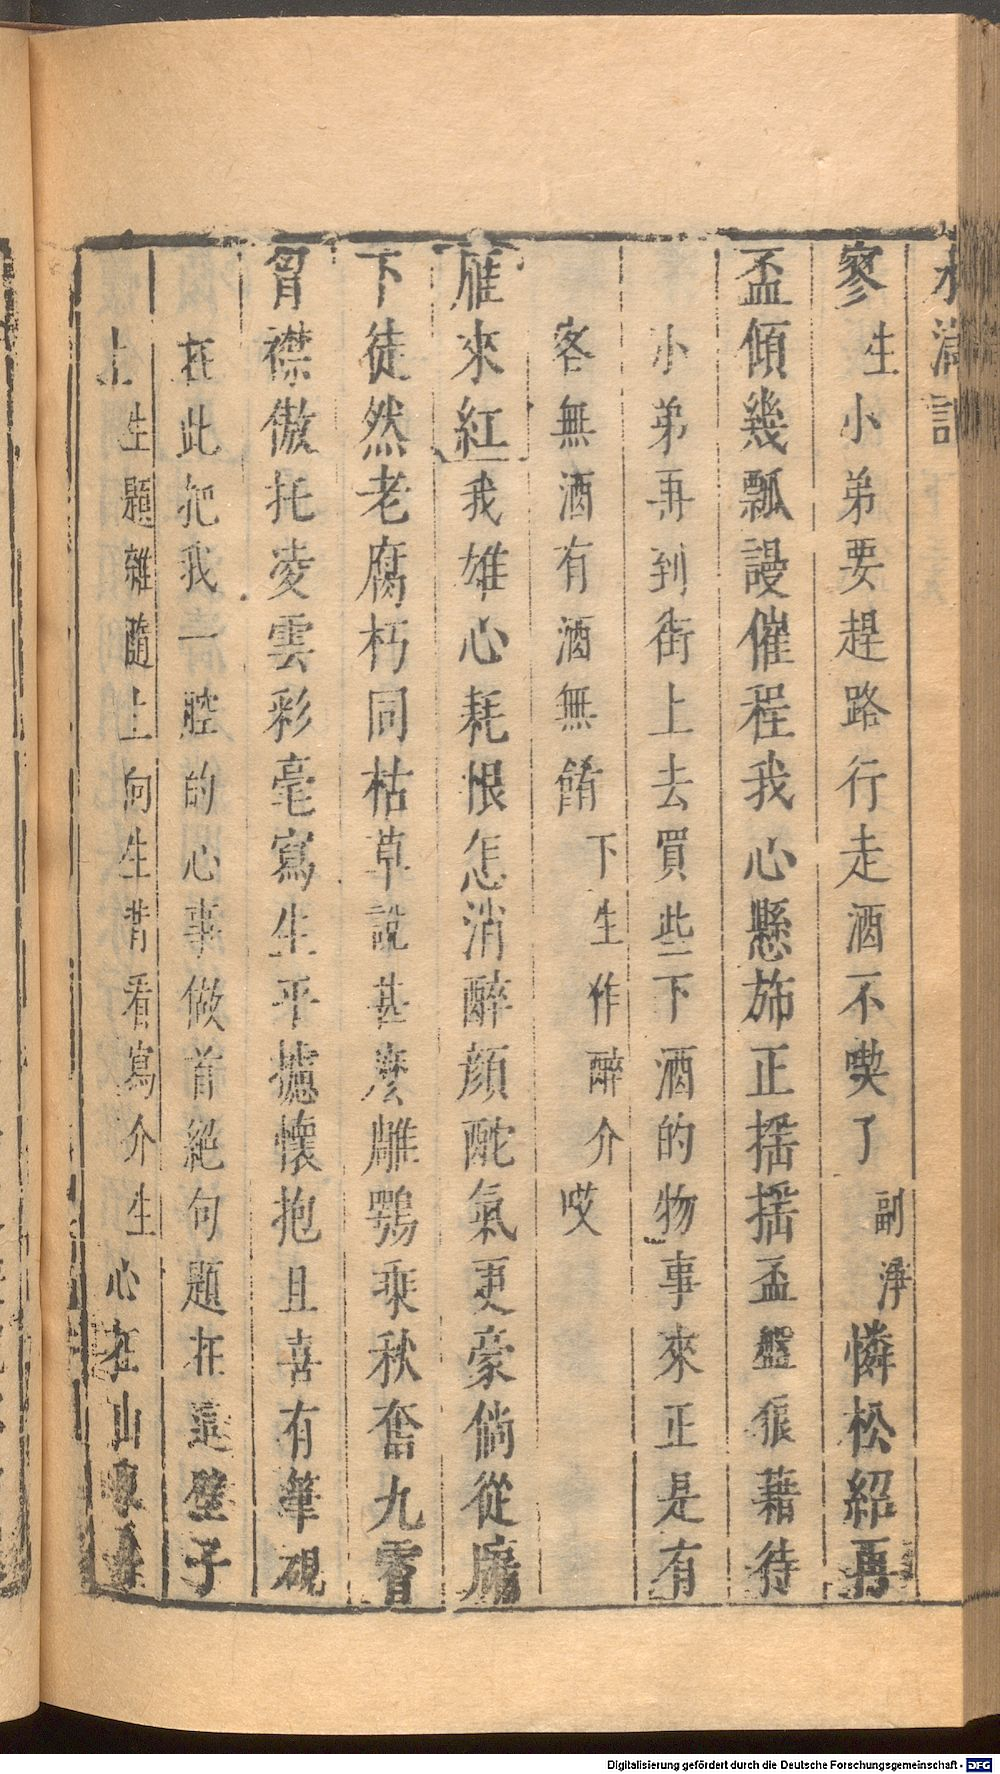 水滸記
寥生小弟要趕路行走酒不喫了副淨憐松紹再
盃傾幾瓢謾催程我心懸斾正揺揺盃盤狼藉待
小弟再到街上去買些下酒的物事來正是有
客無酒有酒無餚下生作醉介哎
雁來紅我雄心耗恨怎消醉顔酡氣更豪倘從廡
下徒然老腐朽同枯草說甚麽鵰鶚乘秋奮九霄
胷襟傲托凌雲彩毫寫生平攄懷抱且喜有筆硯
在此把我一腔的心事做首絕句題在這壁子
上生題雜隨上向生背看寫介生心在山東身
Digitalisierung gefördert durch die Deutsche Forschungsgemeinschaft - DFG